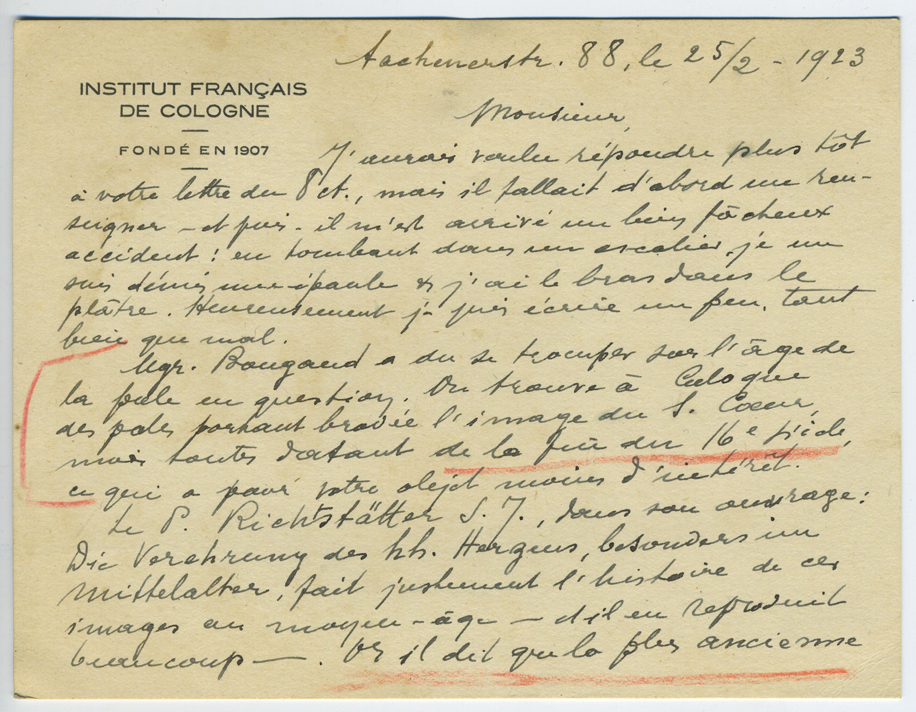 Aachenerstr. 88, le 25/2 - 1923
INSTITUT FRANÇAIS
DE COLOGNE
FONDÉ EN 1907
Monsieur,
J'aurais voulu répondre plus tôt
à votre lettre du 8 ct., mais il fallait d'abord me ren-
seigner - et puis - il m'est arrivé un bien fâcheux
accident : en tombant dans un escalier je me
suis démis une épaule & j'ai le bras dans le
plâtre. Heureusement je puis écrire un peu, tant
bien que mal.
Mgr. Bougaud a du se tromper sur l'âge de
la pale en question. On trouve à Cologne
des pales portant brodée l'image du S. Coeur,
mais toutes datant de la fin du 16e siècle,
ce qui a pour votre objet moins d'intérêt.
Le P. Richstätter S. J., dans son ouvrage :
Die Verehrung des hh. Herzens, besonders im
Mittelalter, fait justement l'histoire de ces
images au moyen-âge - et il en reproduit
beaucoup - . Or il dit que la plus ancienne